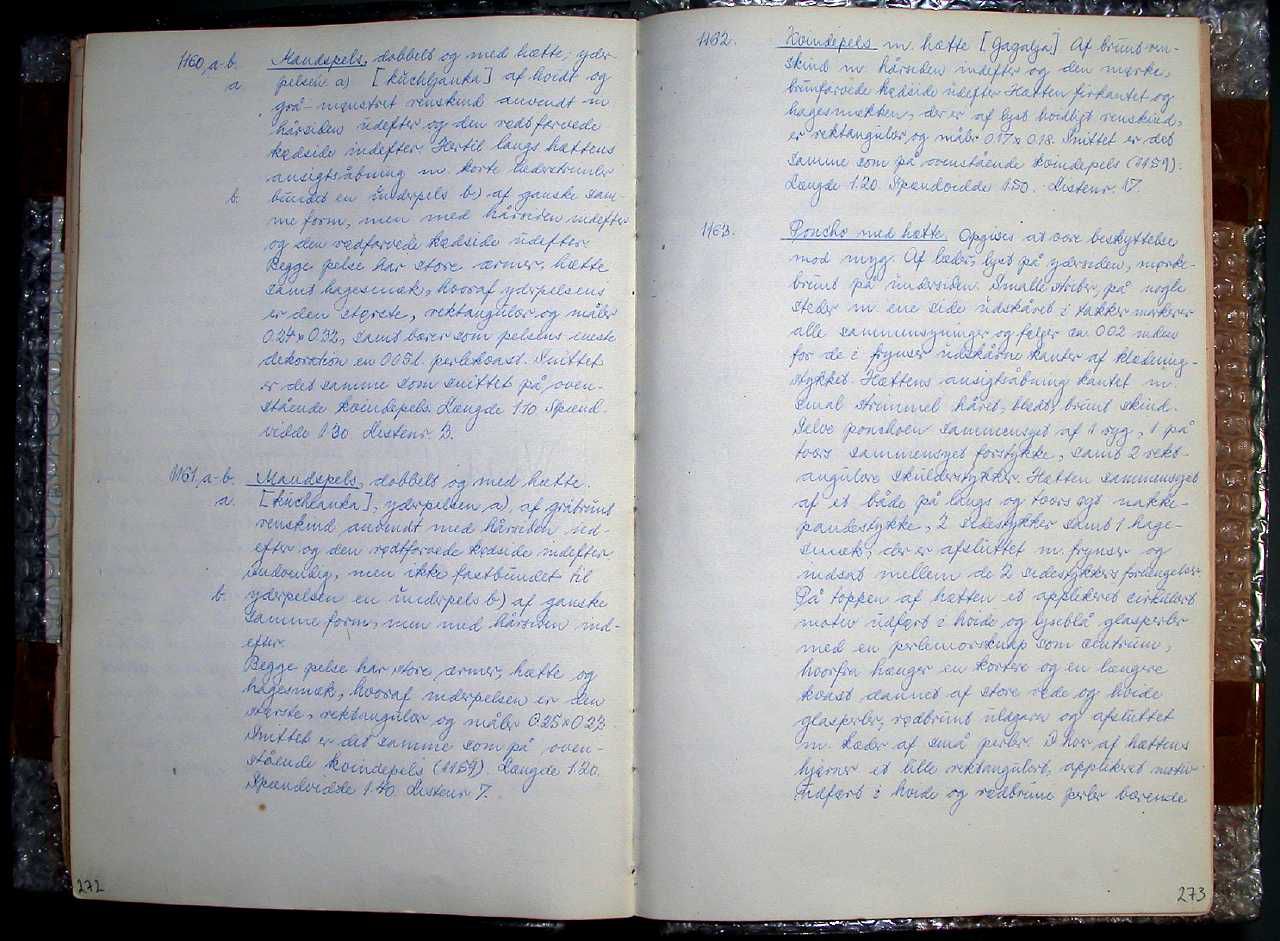 1160, a-b. Mandspels, dobbelt og med hætte; yder-
a pelsen a) [kuchljanka] af hvidt og
gråmønstret renskind anvendt m
hårsiden udefter og den rødtfarvede
kødside indefter. Hertil langs hættens
ansigtsåbning m. korte læderstrimler
b. bundet en underpels b) af ganske sam-
me form, men med hårsiden indefter
og den rødfarvede kødside udefter.
Begge pelse har store ærmer, hætte
samt hagesmæk, hvoraf yderpelsens
er den største, rektangulær og måler
0.24 x 0.32, samt bærer som pelsens eneste
dekoration en 0.05 l. perlekvast. Snittet
er det samme som snittet på oven-
stående kvindepels. Længde 1.10 Spænd-
vidde 1.30 Listenr. 3.
1161, a-b. Mandspels, dobbelt og med hætte.
a. [kuchlanka], yderpelsen a), af gråbrunt
renskind anvendt med hårsiden ud-
efter og den rødtfarvede kødside indefter
indvendig, men ikke fastbundet til
b. yderpelsen en underpels b) af ganske
samme form, men med hårsiden ind-
efter.
Begge pelse har store ærmer, hætte og
hagesmæk, hvoraf inderpelsen er den
største, rektangulær og måler 0.25 x 0.27.
Snittet er det samme som på oven-
stående kvindepels (1159). Længde 1.20.
Spændvidde 1.40. Listenr 7.
272
1162. Kvindepels m. hætte [Gagalja] Af brunt ren-
skind m hårsiden indefter og den mørke,
brunfarvede kødside udefter. Hætten firkantet og
hagesmækken, der er af lyst hvidligt renskind,
er rektangulær og måler 0.17 x 0.18. Snittet er det
samme som på ovenstående kvindepels (1159).
Længde 1.20. Spændvidde 1.50. Listenr. 17.
1163. Poncho med hætte. Opgives at være beskyttelse
mod myg. Af læder, lyst på ydersiden, mørke-
brunt på undersiden. Smalle striber, på nogle
steder m. ene side udskåret i takker markerer
alle sammensyninger og følger ca 0.02 inden
for de i frynser udskårne kanter af klædnings-
stykket. Hættens ansigtsåbning kantet m.
smal strimmel håret, blødt, brunt skind.
Selve ponchoen sammensyet af 1 ryg-, 1 på
tværs sammensyet forstykke, samt 2 rekt-
angulære skulderstykker. Hætten sammensyet
af et både på langs og tværs syet nakke-
pandestykke, 2 sidestykker samt 1 hage-
smæk, der er afsluttet m. frynser og
indsat mellem de 2 sidestykkers forlængelser.
På toppen af hætten et appliceret cirkulært
motiv udført i hvide og lyseblå glasperler
med en perlemorsknap som centrum,
hvorfra hænger en kortere og en længere
kvast dannet af store røde og hvide
glasperler, rødbrunt uldgarn og afsluttet
m. kæder af små perler. I hver af hættens
hjørner et lille rektangulært, appliceret motiv
udført i hvide og rødbrune perler bærende
273